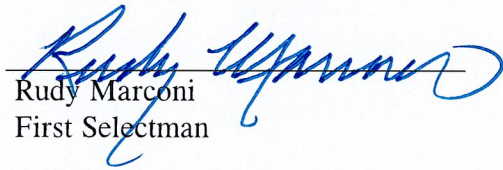 Rudy Marconi
Rudy Marconi
First Selectman